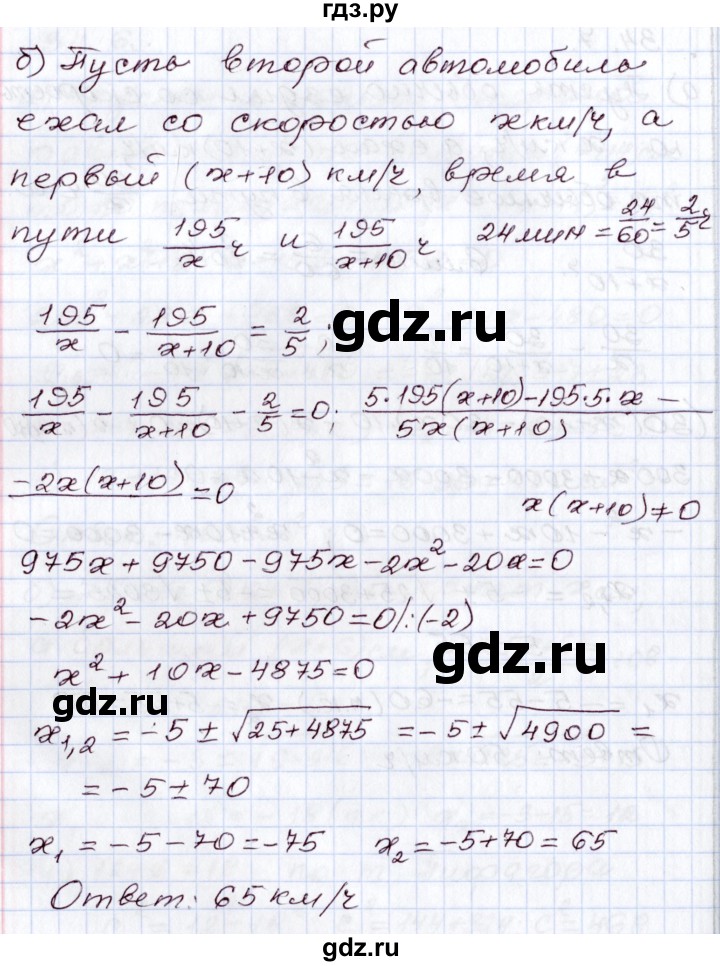 гдз.ру
б) Пусть второй автомобиль
ехал со скоростью x км/ч, а
первый (x+10) км/ч, время в
пути 195/x ч и 195/(x+10) ч 24 мин = 24/60 = 2/5 ч
195/x - 195/(x+10) = 2/5;
gdz.ru
195/x - 195/(x+10) - 2/5 = 0; (5·195(x+10)-195·5·x -
5x(x+10)
-2x(x+10))/ = 0
x(x+10)≠0
gdz.ru
975x + 9750 - 975x - 2x² - 20x = 0
-2x² - 20x + 9750 = 0 /:(-2)
x² + 10x - 4875 = 0
gdz.ru
gdz.ru
x₁,₂ = -5 ± √(25+4875) = -5 ± √4900 =
= -5 ± 70
x₁ = -5 - 70 = -75 x₂ = -5 + 70 = 65
Ответ: 65 км/ч
gdz.ru